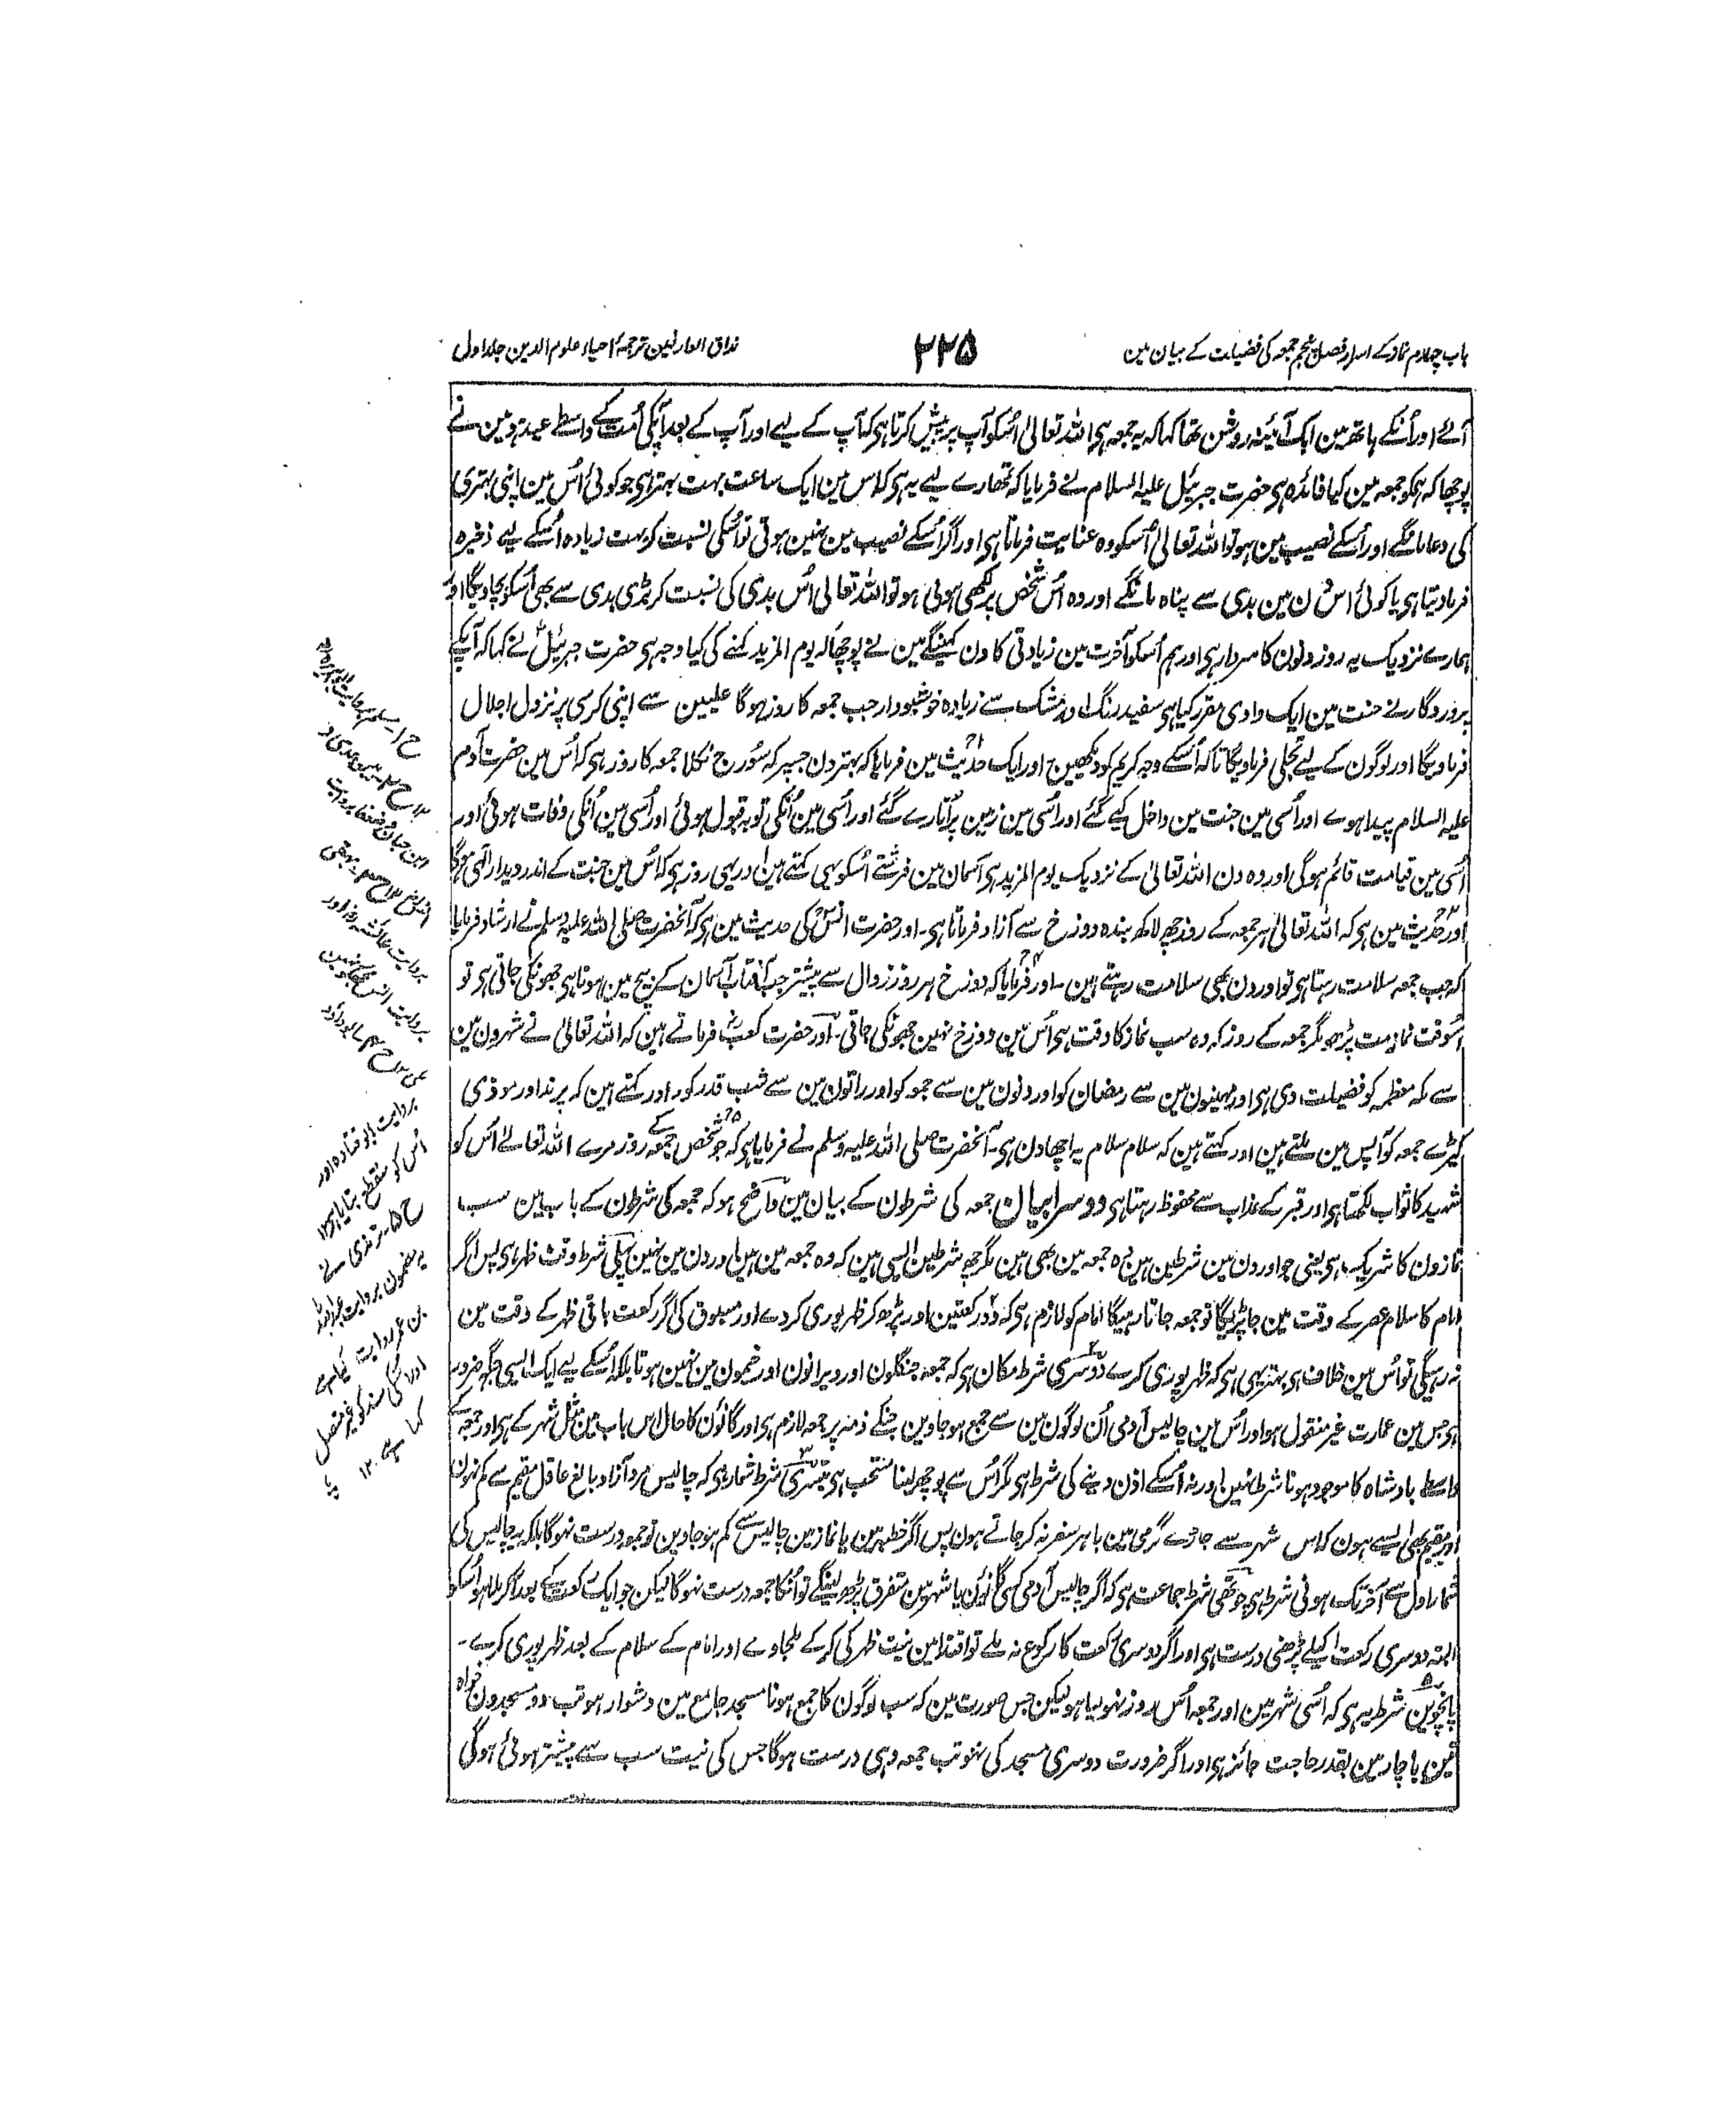 باب چہارم نماز کے اسرار فصل پنجم جمعہ کی فضیلت کے بیان مین
۲۲۵
مذاق العارفین ترجمۂ احیاء علوم الدین جلد اول
آئے اور اُنکے ہاتھ مین ایک آئینہ روشن تھا کہا کہ یہ جمعہ ہی اللہ تعالیٰ اسکو آپ پر پیش کرتا ہی کہ آپ کے لیے اور آپ کے بعد آپکی اُمت کے واسطے عید ہو مین نے
پوچھا کہ ہمکو جمعہ مین کیا فائدہ ہی حضرت جبرئیل علیہ السلام نے فرمایا کہ تمھارے لیے یہ ہی کہ اس مین ایک ساعت بہت بہتر ہی جو کوئی اُس مین اپنی بہتری
کی دعا مانگے اور اُسکے نصیب مین ہو تو اللہ تعالیٰ اُسکو وہ عنایت فرماتا ہی اور اگر اُسکے نصیب مین نہین ہوتی تو اُسکی نسبت کر بہت زیادہ اُسکے لیے ذخیرہ
فرما دیتا ہی یا کوئی اس دن مین بدی سے پناہ مانگے اور وہ اُس شخص پر لکھی ہوئی ہو تو اللہ تعالی اُس بدی کی نسبت کر بڑی بدی سے بھی اُسکو بچا دیگا اور
ہمارے نزدیک یہ روز دنون کا سردار ہی اور ہم اُسکو آخرت مین زیادتی کا دن کہینگے مین نے پوچھا کہ یوم المزید کہنے کی کیا وجہ ہی حضرت جبرئیل نے کہا کہ آپکے
پروردگار نے جنت مین ایک وادی مقرر کیا ہی سفید رنگ اور مشک سے زیادہ خوشبودار جب جمعہ کا روز ہوگا علیین سے اپنی کرسی پر نزول اجلال
فرماویگا اور لوگون کے لیے تجلی فرماویگا تاکہ اُسکے وجہ کریم کو دیکھین اور ایک حدیث مین فرمایا کہ بہتر دن جسپر کہ سورج نکلا جمعہ کا روز ہی کہ اُس مین حضرت آدم
علیہ السلام پیدا ہوے اور اُسی مین جنت مین داخل کیے گئے اور اُسی مین زمین پر اُتارے گئے اور اُسی مین اُنکی توبہ قبول ہوئی اور اُسی مین اُنکی وفات ہوئی اور
اُسی مین قیامت قائم ہوگی اور وہ دن اللہ تعالیٰ کے نزدیک یوم المزید ہی آسمان مین فرشتے اُسکو یہی کہتے ہین اور یہی روز ہی کہ اُس مین جنت کے اندر دیدار آلٰہی ہوگا
اور حدیث مین ہی کہ اللہ تعالیٰ ہر جمعہ کے روز چھ لاکھ بندہ دوزخ سے آزاد فرماتا ہی۔ اور حضرت انسؓ کی حدیث مین ہی کہ آنحضرت صلی اللہ علیہ وسلم نے ارشاد فرمایا
کہ جب جمعہ سلامت رہتا ہی تو اور دن بھی سلامت رہتے ہین۔ اور فرمایا کہ دوزخ ہر روز زوال سے پیشتر جب آفتاب آسمان کے بیچ مین ہوتا ہی جھونکی جاتی ہی تو
اُسوقت نماز مت پڑھو مگر جمعہ کے روز کہ وہ سب نماز کا وقت ہی اُس مین دوزخ نہین جھونکی جاتی۔ اور حضرت کعبؓ فرماتے ہین کہ اللہ تعالیٰ نے شہرون مین
سے مکہ معظمہ کو فضیلت دی ہی اور مہینون مین سے رمضان کو اور دنون مین سے جمعہ کو اور راتون مین سے شب قدر کو۔ اور کہتے ہین کہ پرند اور موذی
کیڑے جمعہ کو آپس مین ملتے ہین اور کہتے ہین کہ سلام سلام یہ اچھا دن ہی۔ آنحضرت صلی اللہ علیہ وسلم نے فرمایا ہی کہ جو شخص جمعہ کے روز مرے اللہ تعالے اُس کو
شہید کا ثواب لکھتا ہی اور قبر کے عذاب سے محفوظ رہتا ہی دوسرا بیان جمعہ کی شرطون کے بیان مین واضح ہو کہ جمعہ کی شرطون کے باب مین سب
نمازون کا شریک ہی یعنی جو اورون مین شرطین ہین وہ جمعہ مین بھی ہین مگر چھ شرطین ایسی ہین کہ وہ جمعہ مین ہین اورون مین نہین پہلی شرط وقت ظہر ہی پس اگر
امام کا سلام عصر کے وقت مین جا پڑیگا تو جمعہ جاتا رہیگا امام کو لازم ہی کہ دو رکعتین اور پڑھ کر ظہر پوری کردے اور مسبوق کی اگر رکعت باقی ظہر کے وقت مین
نہ رہیگی تو اُس مین خلاف ہی بہتر یہی ہی کہ ظہر پوری کرے دوسری شرط مکان ہی کہ جمعہ جنگلون اور ویرانون اور خیمون مین نہین ہوتا بلکہ اُسکے لیے ایک ایسی جگہ ضرور
ہی جس مین عمارت غیر منقول ہو اور اُس مین چالیس آدمی اُن لوگون مین سے جمع ہو جاوین جنکے ذمہ پر جمعہ لازم ہی اور گانوُن کا حال اس باب مین مثل شہر کے ہی اور جمعہ کے
واسطے بادشاہ کا موجود ہونا شرط نہین اور نہ اُسکے اذن دینے کی شرط ہی مگر اُس سے پوچھ لینا مستحب ہی تیسری شرط شمار ہی کہ چالیس مرد آزاد بالغ عاقل مقیم سے کم نہون
اور مقیم بھی ایسے ہون کہ اس شہر سے جاڑے گرمی مین باہر سفر نہ کر جاتے ہون پس اگر خطبہ مین یا نماز مین چالیس سے کم ہو جاوین تو جمعہ درست نہوگا بلکہ یہ چالیس کی
شمار اول سے آخر تک ہونی شرط ہی چوتھی شرط جماعت ہی کہ اگر چالیس آدمی کسی گانوُن یا شہر مین متفرق پڑھ لینگے تو اُنکا جمعہ درست نہوگا لیکن جو ایک رکعت کے بعد آکر ملا ہو اُسکو
البتہ دوسری رکعت اکیلے پڑھنی درست ہی اور اگر دوسری رکعت کا رکوع نہ ملے تو اقتدا مین نیت ظہر کی کرکے ملجاوے اور امام کے سلام کے بعد ظہر پوری کرے۔
پانچوین شرط یہ ہی کہ اُسی شہر مین اور جمعہ اُس روز نہو لیا ہو لیکن جس صورت مین کہ سب لوگون کا جمع ہونا مسجد جامع مین دشوار ہو تب دو مسجدون خواہ
تین یا چار مین بقدر حاجت جائز ہی اور اگر ضرورت دوسری مسجد کی نہو تب جمعہ وہی درست ہوگا جس کی نیت سب سے پیشتر ہوئی ہوگی
ح ۱
ابن حبان
بروایت عائشہ رض اور
بروایت انس
بروایت ابو قتادہ اور
اُس کو منقطع بتایا ہی ۱۲
ح ۵۔ ترمذی نے
یہ مضمون بروایت
بن عمر روایت کیا ہے
اور اُسکی سند کو غیر متصل
کہا ہے ۱۲